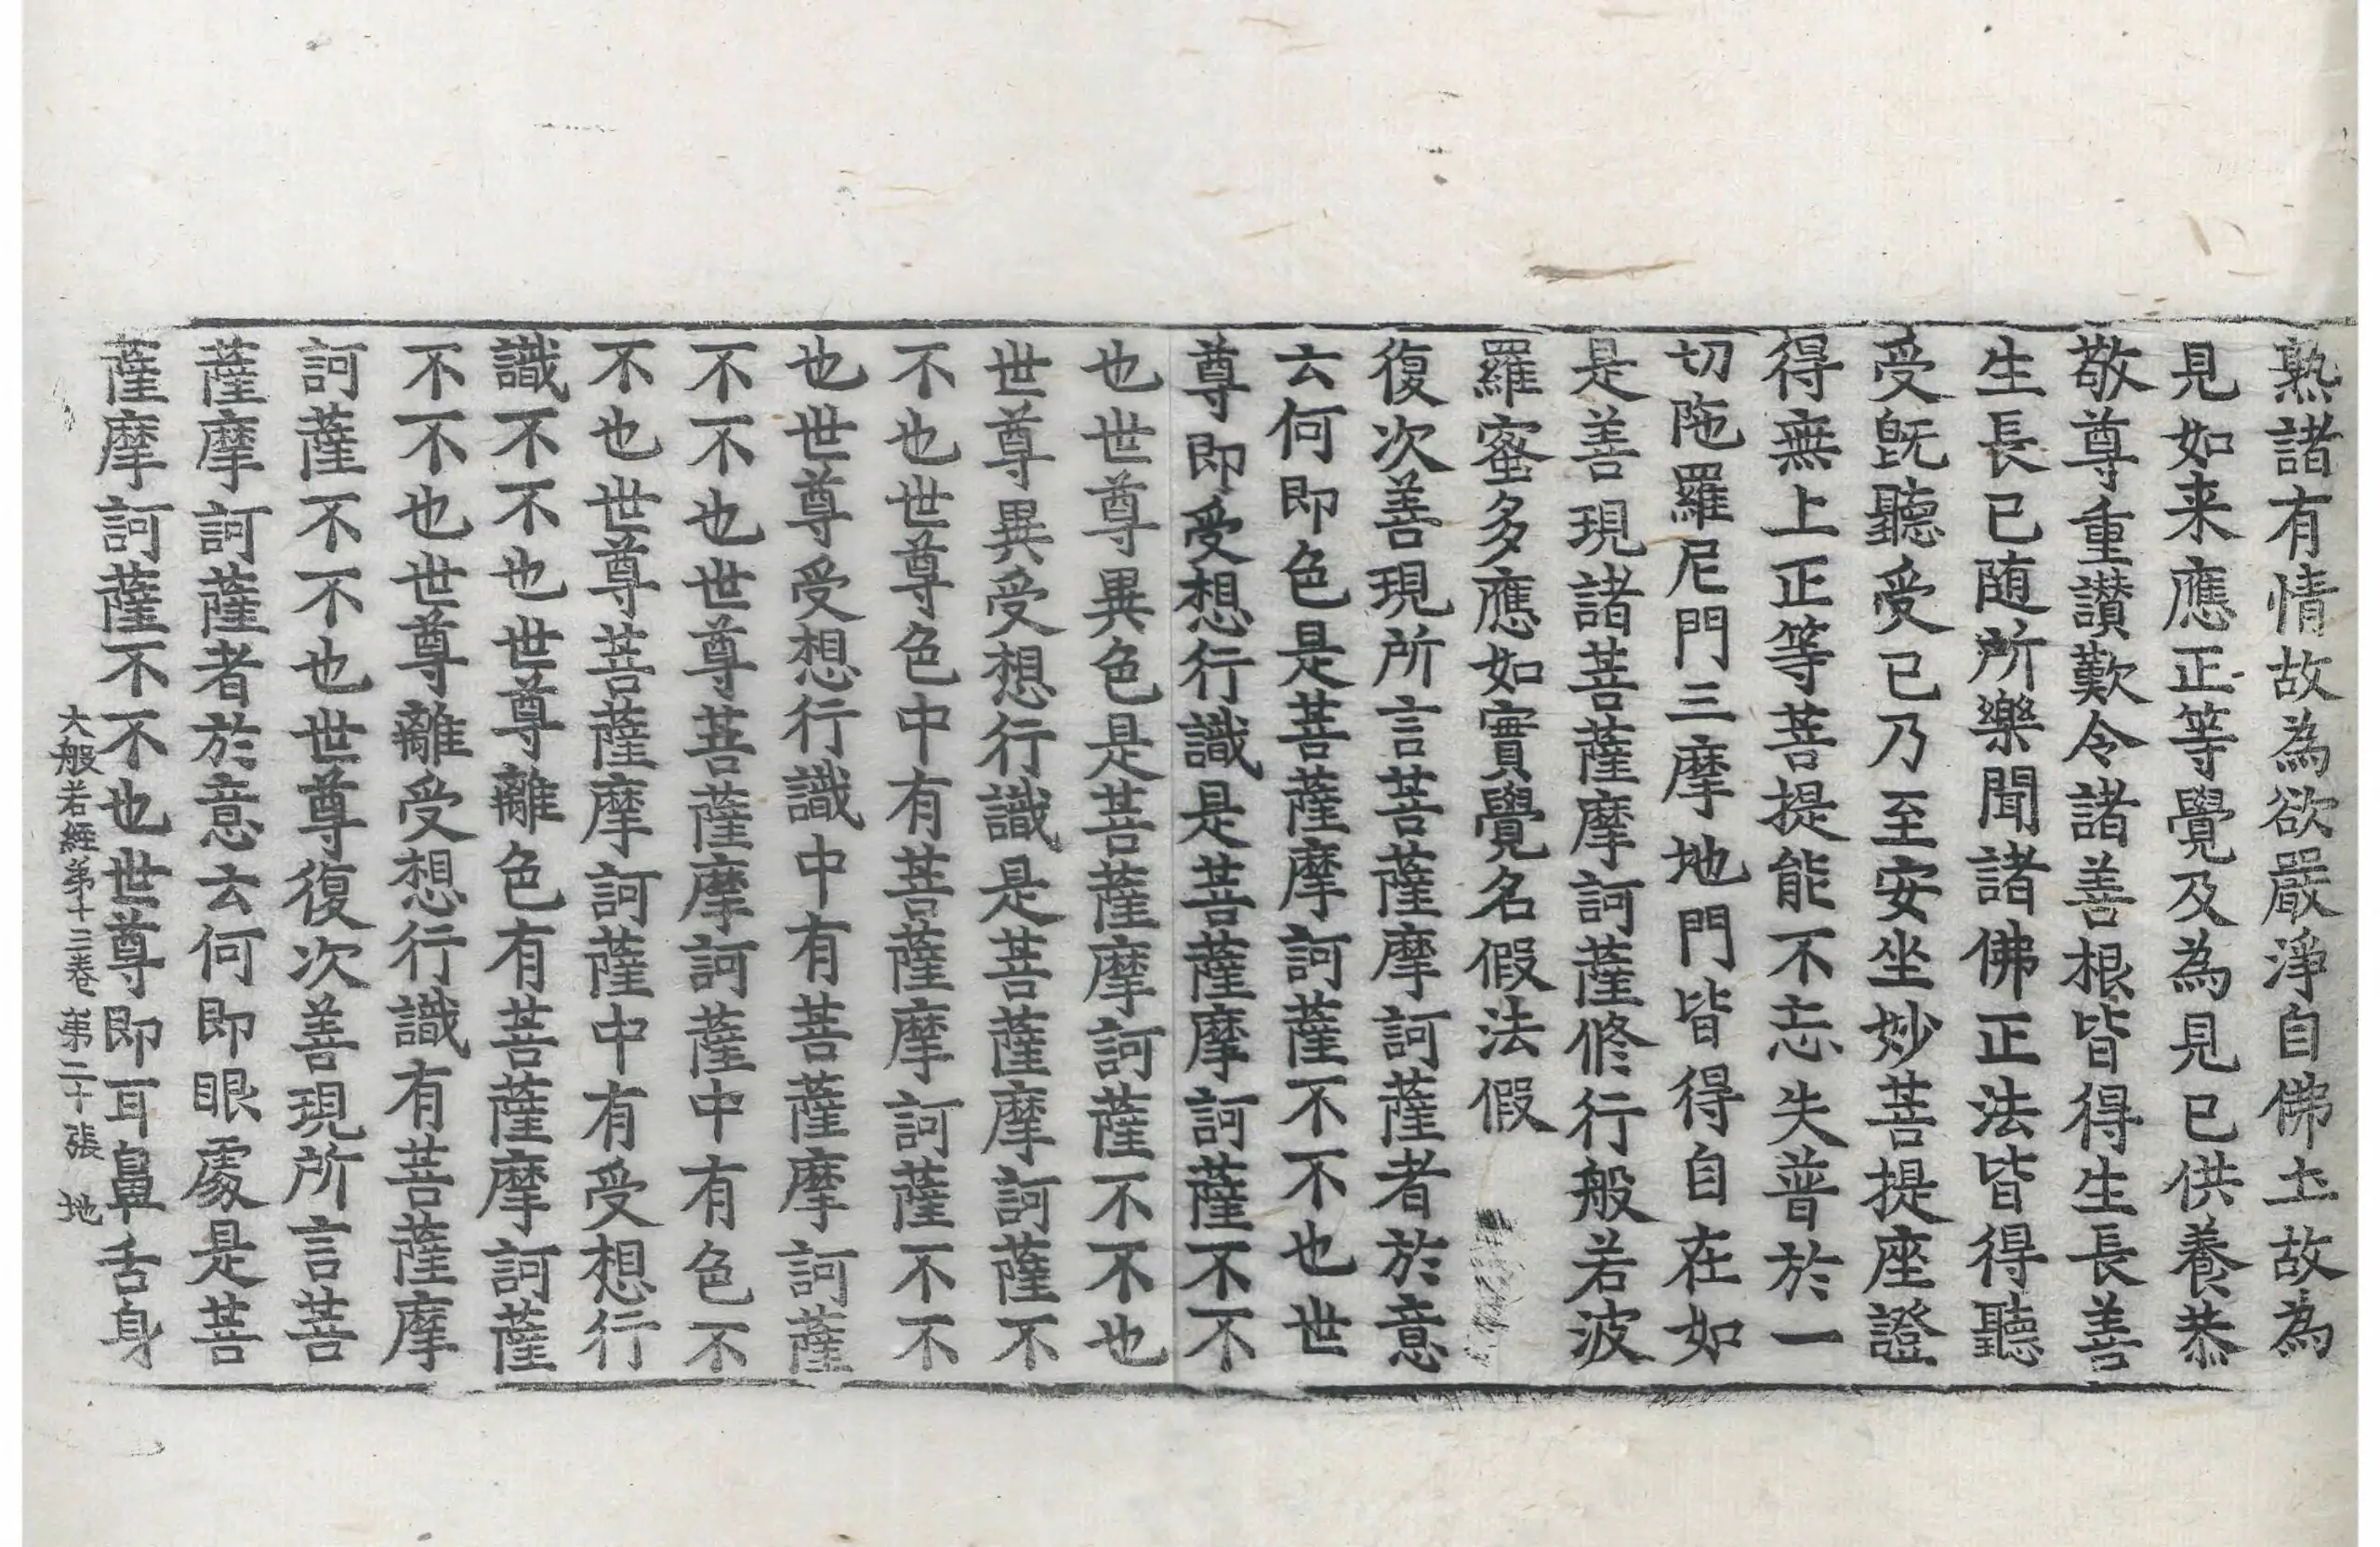 熟諸有情故為欲嚴淨自佛土故為
見如来應正等覺及為見已供養恭
敬尊重讃歎令諸善根皆得生長善
生長已随所樂聞諸佛正法皆得聽
受旣聽受已乃至安坐妙菩提座證
得無上正等菩提能不忘失普於一
切陁羅尼門三摩地門皆得自在如
是善現諸菩薩摩訶薩修行般若波
羅蜜多應如實覺名假法假
復次善現所言菩薩摩訶薩者於意
云何即色是菩薩摩訶薩不不也世
尊即受想行識是菩薩摩訶薩不不
也世尊異色是菩薩摩訶薩不不也
世尊異受想行識是菩薩摩訶薩不
不也世尊色中有菩薩摩訶薩不不
也世尊受想行識中有菩薩摩訶薩
不不也世尊菩薩摩訶薩中有色不
不也世尊菩薩摩訶薩中有受想行
識不不也世尊離色有菩薩摩訶薩
不不也世尊離受想行識有菩薩摩
訶薩不不也世尊復次善現所言菩
薩摩訶薩者於意云何即眼處是菩
薩摩訶薩不不也世尊即耳鼻舌身
大般若經第十三卷 第二十張 地